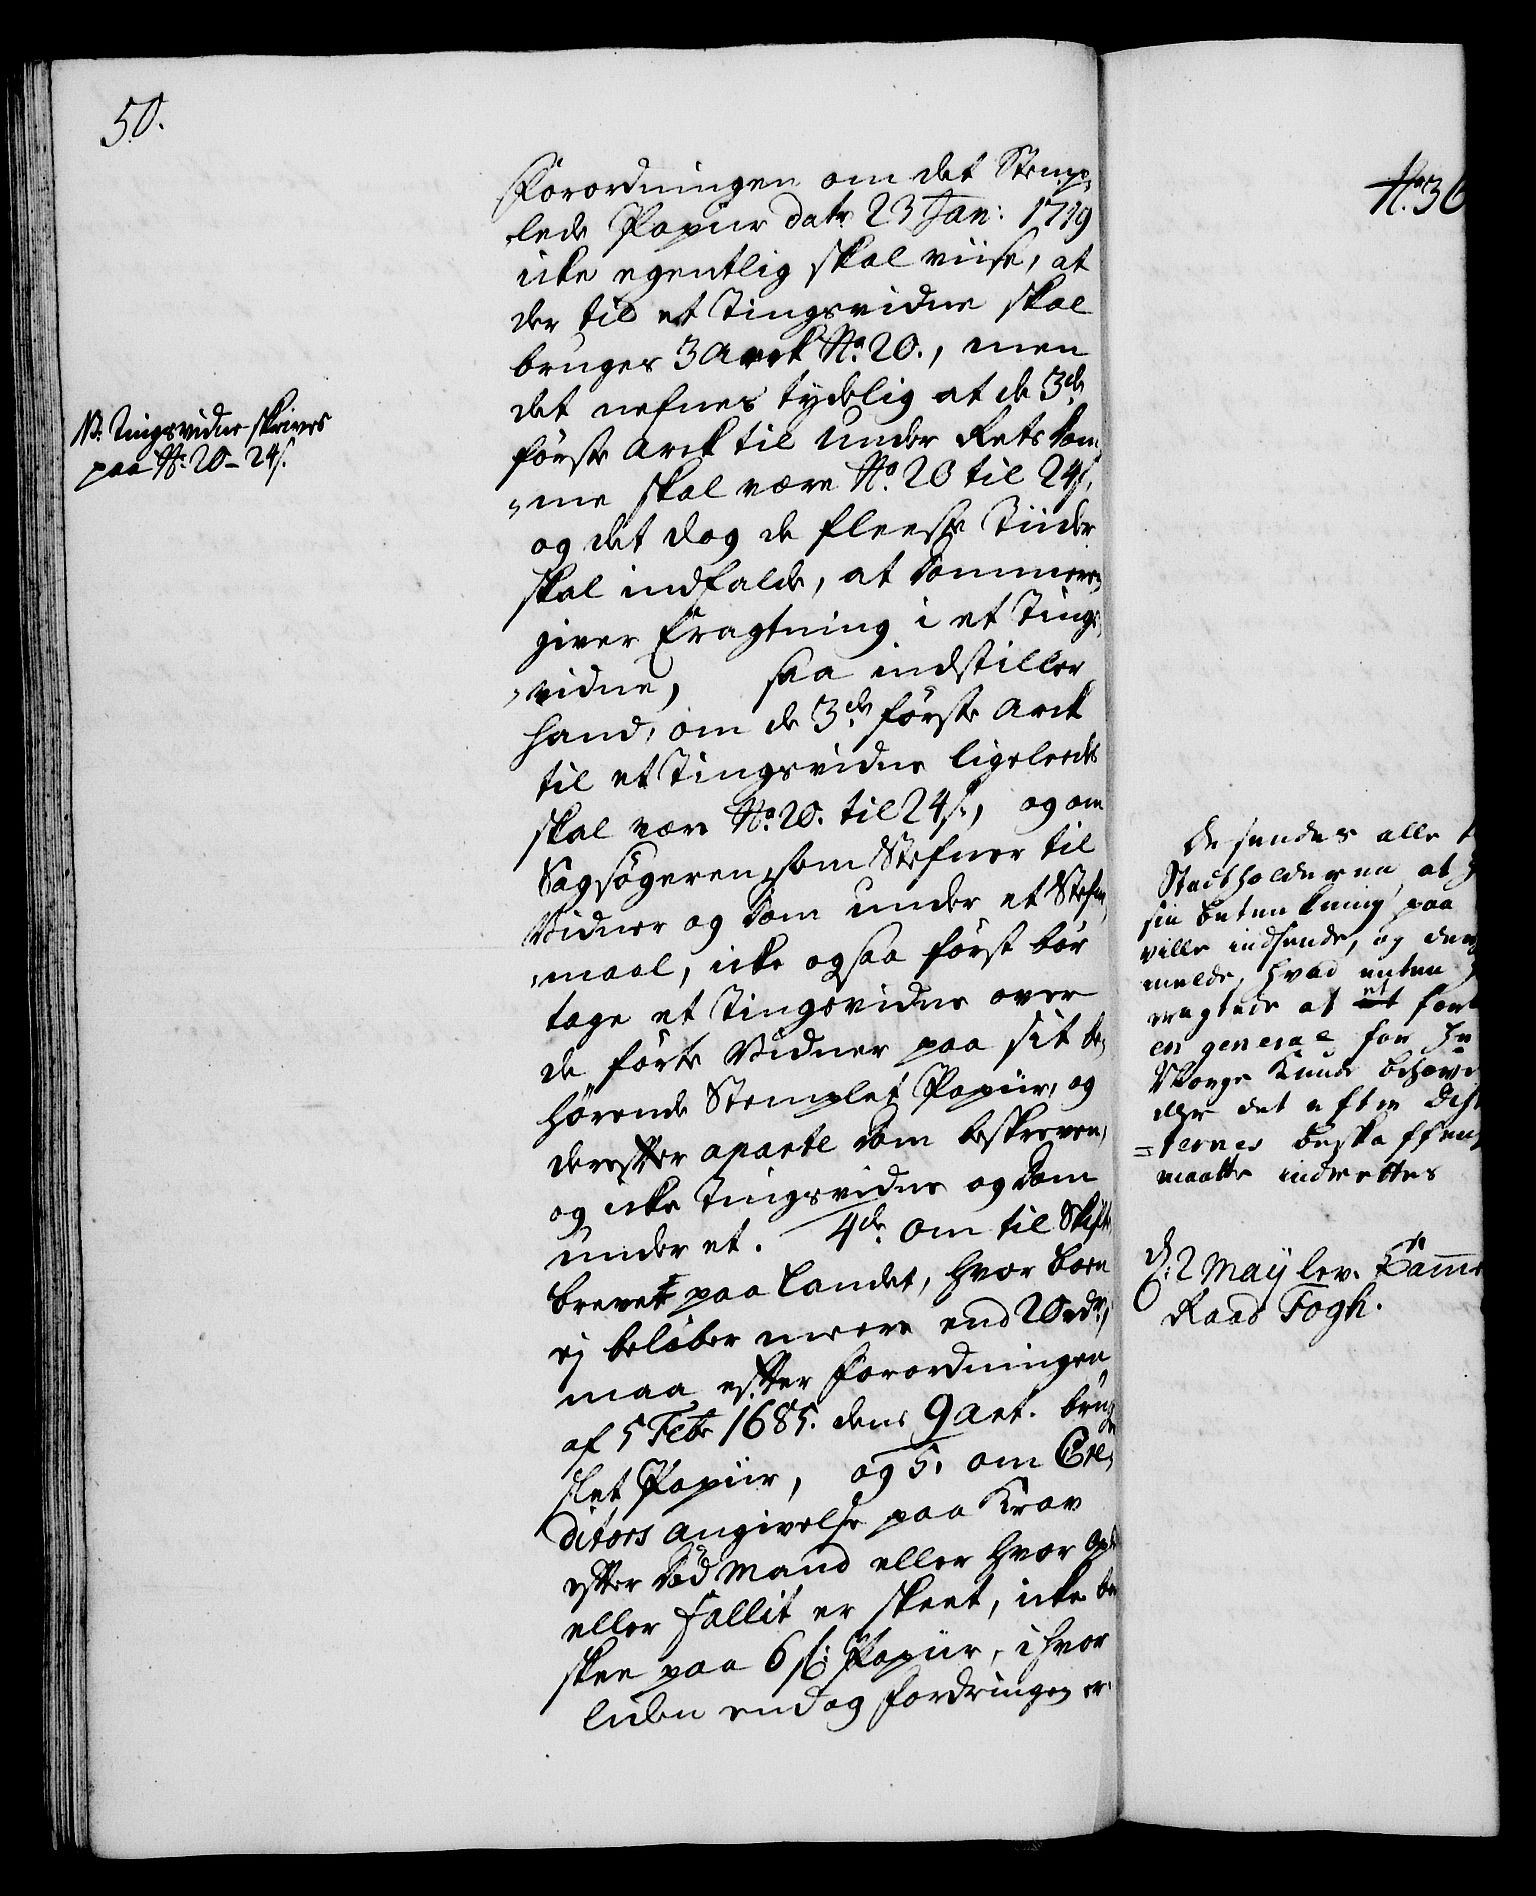 50.
Forordningen om det Stemp,
lede Papiir dat: 23 Jan: 1719
icke egentlig skal viise, at
der til et Tingsvidne skal
bruges 3 Arck No. 20., men
det nefnes tydelig at de 3de
første Arck til Under Rets Dom,
„me skal være No. 20 til 24 s.
og det dog de fleeste Tiider
skal indfalde, at Dommeren
giver Eragtning i et Tings,
„vidne, saa indstiller
hand, om de 3de første Arck
til et Tingsvidne ligeleedes
skal være No. 20. til 24 s., og om
Sagsøgeren, som Stefner til
Vidner og Dom under et Stefn,
„maal, icke ogsaa først bør
tage et Tingsvidne over
de førte Vidner paa sit be,
hørende Stemplet Papiir, og
derefter aparte Dom beskreven,
og icke Tingsvidne og Dom
under et. 4de. om til Skifte
brevet paa Landet, hvor Boen
ej beløber meere end 20 rdr.,
maa efter Forordningen
af 5 Febr 1685. dens 9 Art. bruges
slet Papiir, og 5. om Cre,
ditors angivelse paa Krav
efter død Mand eller hvor
eller Fallit er skeet, icke bør
skee paa 6 s: Papiir, i hvor
liden endog Fordringen er
NB. Tingsvidne skrives
paa No. 20 - 24 s.
No. 36
De sendes alle
Stadtholderen, at
sin betenkning paa
ville indsende, og der
melde, hvad enten
eragtede at et
en general for
Norge kunde
eller det efter
=ternes beskaffen
maatte indrettes
d: 2 Maij lev. Camme
Raad Fogh.